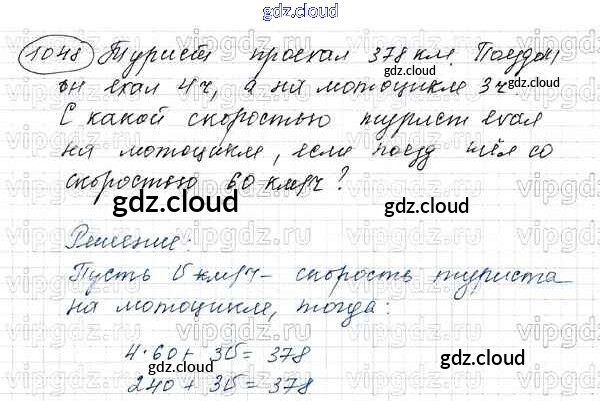 gdz.cloud
1048 Турист проехал 378 км. Поездом
gdz.cloud
он ехал 4 ч, а на мотоцикле 3 ч.
gdz.cloud
С какой скоростью турист ехал
на мотоцикле, если поезд шёл со
скоростью 60 км/ч?
gdz.cloud gdz.cloud
Решение:
Пусть v км/ч – скорость туриста
на мотоцикле, тогда:
gdz.cloud
4·60 + 3v = 378
240 + 3v = 378
gdz.cloud